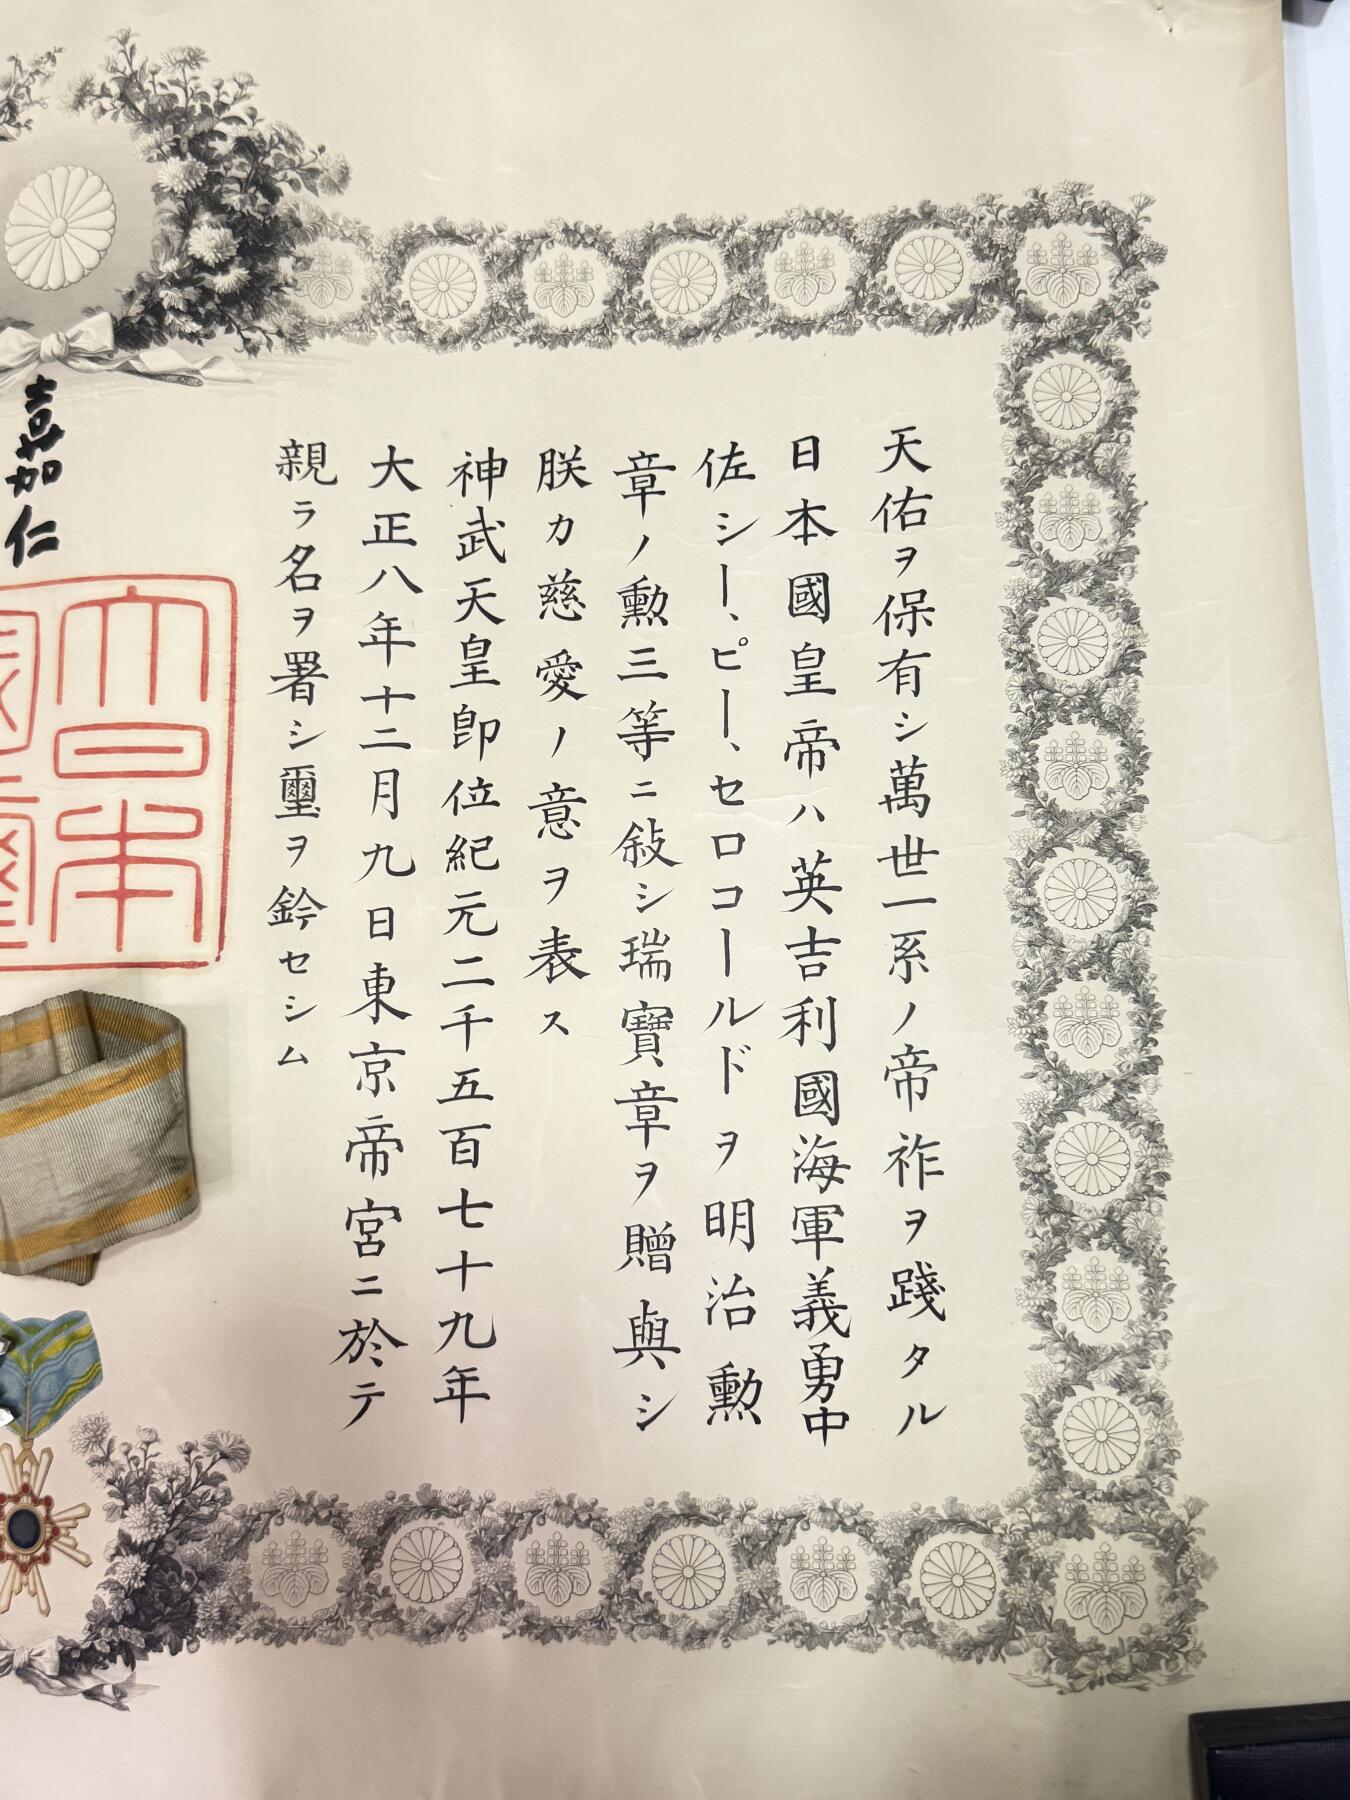 天佑ヲ保有シ萬世一系ノ帝祚ヲ踐タル
日本國皇帝ハ英吉利國海軍義勇中
佐シー、ピー、セロコールドヲ明治勲
章ノ勲三等ニ敍シ瑞寶章ヲ贈與シ
朕カ慈愛ノ意ヲ表ス
神武天皇卽位紀元二千五百七十九年
大正八年十二月九日東京帝宮ニ於テ
親ラ名ヲ署シ璽ヲ鈐セシム
嘉仁
大日本